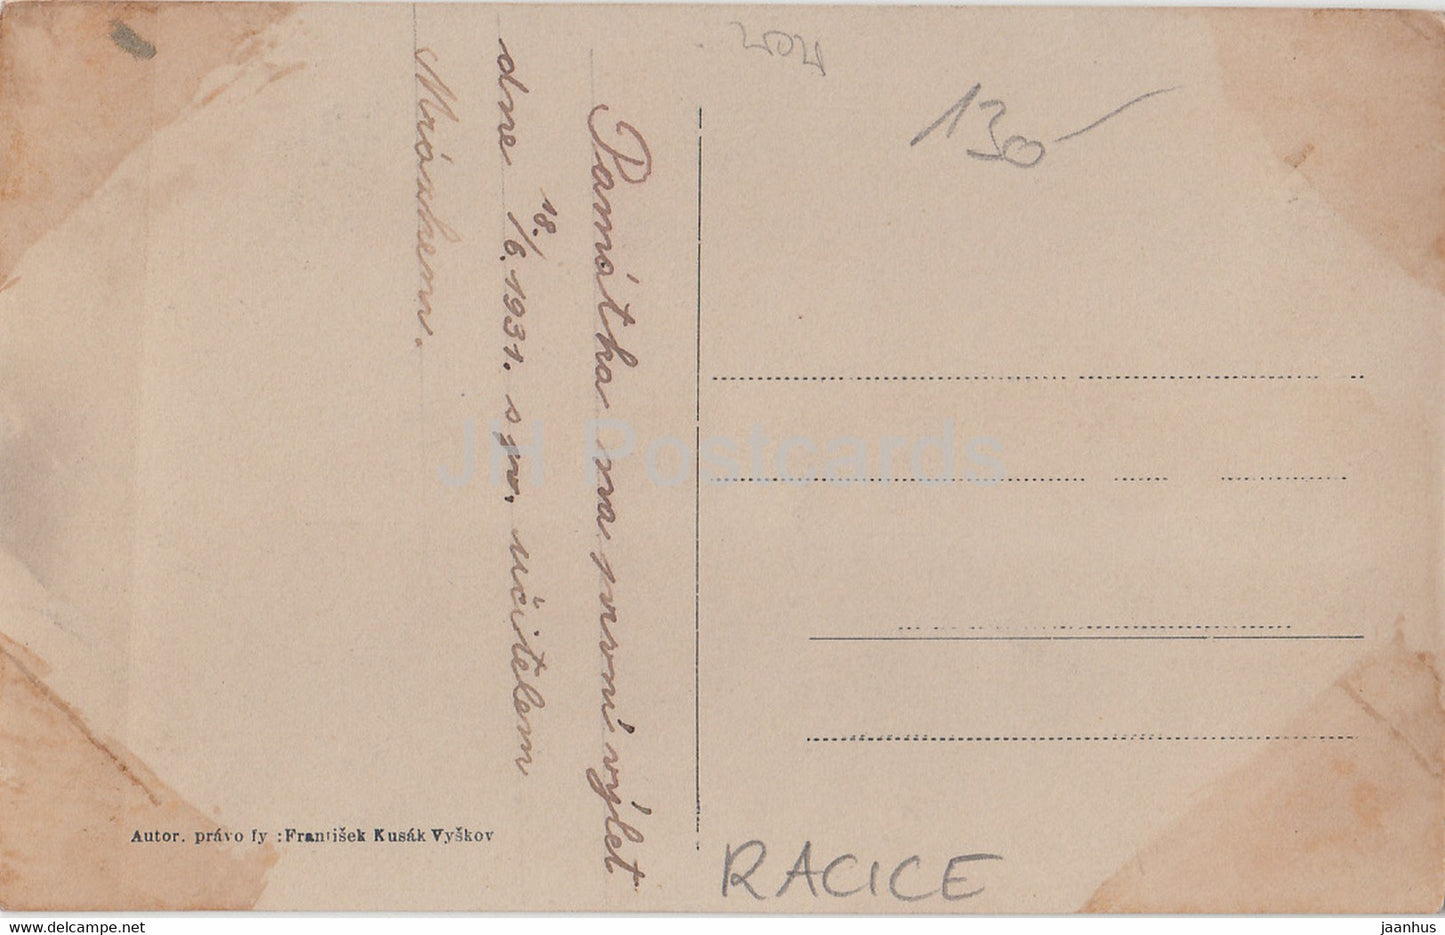 130-
Památka na první výlet
dne 18./6. 1931. s p. učitelem
JH Postcards
Autor. právo fy : František Kusák Vyškov
RACICE
www.delcampe.net
jaanhus